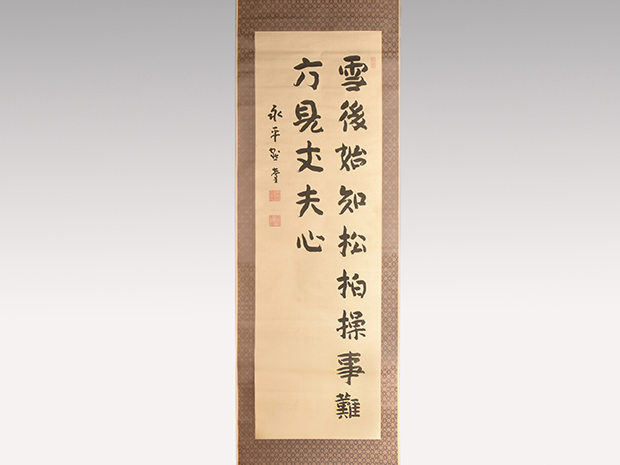 雪後始知松柏操事難
方見丈夫心
永平